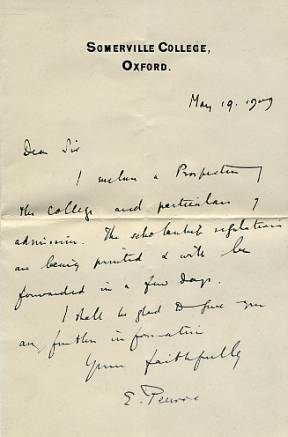 SOMERVILLE COLLEGE,
OXFORD.
May 19. 1909
Dear Sir
I enclose a Prospectus of
the College and particulars of
admission. The scholarship regulations
are being printed & will be
forwarded in a few days.
I shall be glad to give you
any further information
Yours faithfully
E. Penrose